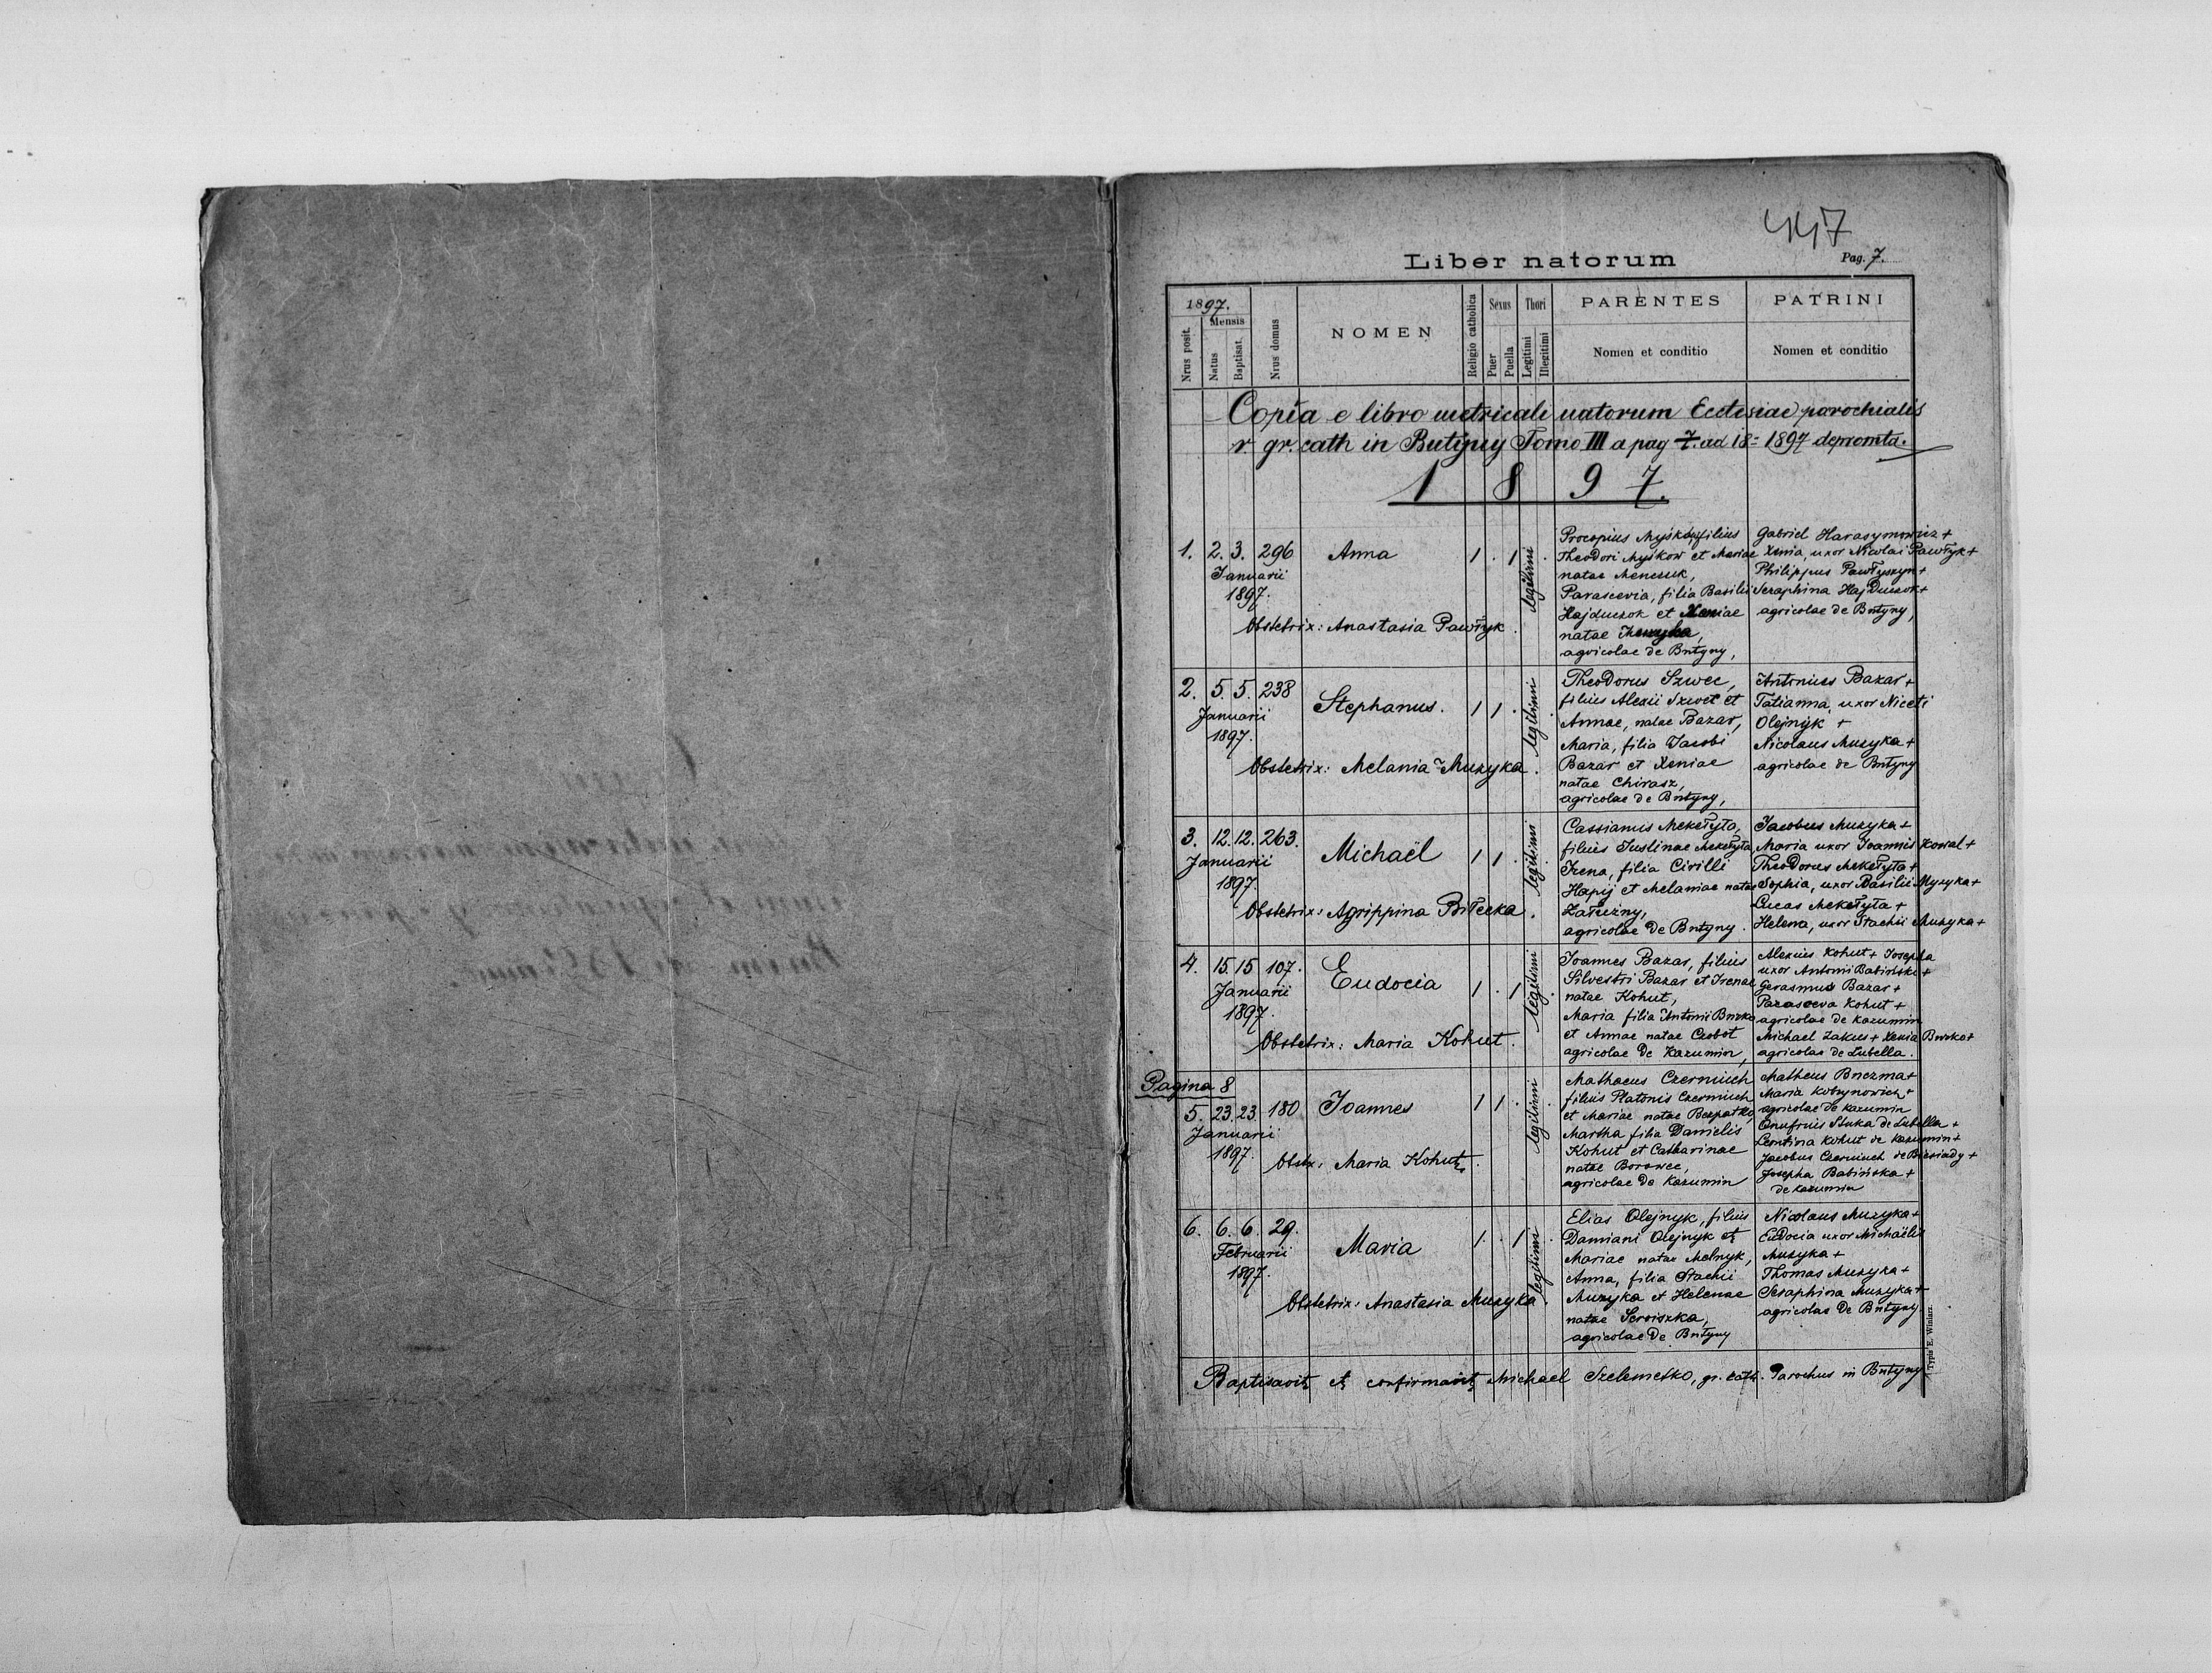 447
Liber natorum
Pag. 7.
1897.
Mensis
Nrus posit.
Natus
Baptisat.
Nrus domus
NOMEN
Religio catholica
Sexus
Puer
Puella
Thori
Legitimi
Illegitimi
PARENTES
Nomen et conditio
PATRINI
Nomen et conditio
Copia e libro metricali natorum Ecclesiae parochialis
r. gr. cath in Butyny Tomo III a pag 7. ad 18 = 1897 depromta.
1897.
1. 2. 3. 296 Anna 1 . 1 legitimi .
Januarii
1897.
Obstetrix: Anastasia Pawłyk.
Procopius Myśków, filius
Theodori Myśkow et Mariae
natae
Parascevia, filia Basilii
Hajduczok et Xeniae
natae
agricolae de Butyny,
Gabriel Harasymowicz +
Xenia, uxor Nicolai Pawłyk +
Philippus Pawłyszyn +
Seraphina Hajduczok +
agricolae de Butyny,
2. 5. 5. 238 Stephanus. 1 1 . legitimi .
Januarii
1897.
Obstetrix: Melania Muzyka.
Theodorus Szwec,
filius Alexii Szwec et
Annae, natae Bazar,
Maria, filia Jacobi
Bazar et Xeniae
natae Chirasz,
agricolae de Butyny,
Antonius Bazar +
Tatianna, uxor Niceti
Olejnyk +
Nicolaus Muzyka +
agricolae de Butyny
3. 12. 12. 263. Michaël 1 1 . legitimi .
Januarii
1897.
Obstetrix: Agrippina Biłecka.
Cassianus Mekełyta,
filius Justinae Mekełyta,
Irena, filia Cirilli
Hapij et Melaniae natae
Załużny,
agricolae de Butyny.
Jacobus Muzyka +
Maria uxor Joannis Kowal +
Theodorus Mekełyta +
Sophia, uxor Basilii Muzyka +
Lucas Mekełyta +
Helena, uxor Stachii Muzyka +
4. 15. 15 107. Eudocia 1 . 1 legitimi .
Januarii
1897.
Obstetrix: Maria Kohut.
Joannes Bazar, filius
Silvestri Bazar et Irenae
natae Kohut,
Maria filia Antonii
et Annae natae Czobot
agricolae de Kazumin,
Alexius Kohut + Josepha
uxor Antonii Babiński +
Gerasmus Bazar +
Parasceva Kohut +
agricolae de Kazumin
Michael Zakus + Xenia
agricolae de Lubella.
Pagina 8
5. 23. 23. 180 Joannes 1 1 . legitimi .
Januarii
1897.
Obstx: Maria Kohut.
Mathaeus Czerniuch
filius Platonis Czerniuch
et Mariae natae Bezpałko,
Martha filia Danielis
Kohut et Catharinae
natae Borowec,
agricolae de Kazumin
Matheus Buczma +
Maria Kobrynowicz +
agricolae de Kazumin
Onufrius Stuka de Lubella +
Leontina Kohut de Kazumin +
Jacobus Czerniuch de Biesiady +
Josepha Babińska +
de Kazumin
6. 6. 6. 29. Maria 1 . 1 legitimi .
Februarii
1897.
Obstetrix: Anastasia Muzyka.
Elias Olejnyk, filius
Damiani Olejnyk et
Mariae natae Melnyk,
Anna, filia Stachii
Muzyka et Helenae
natae
agricolae de Butyny
Nicolaus Muzyka +
Eudocia uxor Michaëlis
Muzyka +
Thomas Muzyka +
Seraphina Muzyka +
agricolae de Butyny.
Baptisavit et confirmavit Michael Szelemetko, gr. cath. Parochus in Butyny
Typis E. Winiarz.